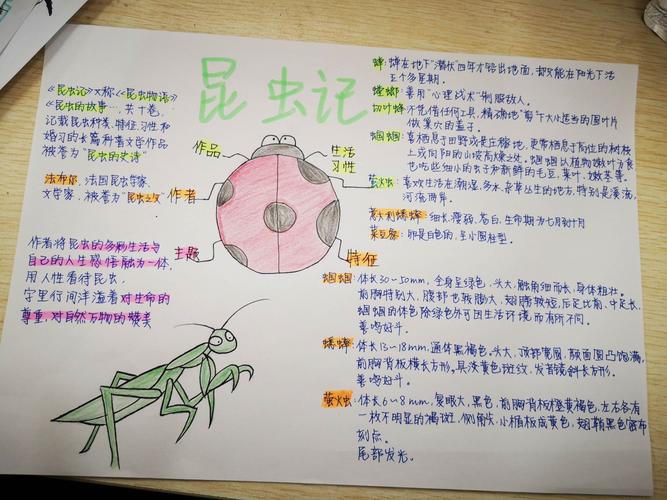 昆虫记
《昆虫记》又称《昆虫物语》
《昆虫的故事》…,共十卷,
记载昆虫种类、特征、习性和
婚习的长篇科普文学作品
被誉为"昆虫的史诗"
法布尔:法国昆虫学家、
文学家,被誉为"昆虫之父"
作者将昆虫的多彩生活与
自己的人生感悟融为一体,
用人性看待昆虫,
字里行间洋溢着对生命的
尊重,对自然万物的赞美
作品
作者
主题
生活
习性
特征
蝉:蝉在地下"潜伏"四年才钻出地面,却只能在阳光下活
五个多星期。
螳螂:善用"心理战术"制服敌人。
切叶蜂:不凭借任何工具,"精确地"剪下大小适当的圆叶片
做巢穴的盖子。
蝈蝈:喜栖息于田野或庄稼地,更常栖息于高位的树枝
上或向阳的山坡高燥处。蝈蝈以植物嫩叶为食
也吃些细小的虫子,和新鲜的毛豆、菜叶、嫩茎等。
萤火虫:喜欢生活在潮湿、多水、杂草丛生的地方,特别是溪流、
河流两岸。
意大利蟋蟀:细长、瘦弱、苍白,生命期为七月到十月
菜豆象:卵是白色的,呈小圆柱型。
蝈蝈:体长30~50mm,全身呈绿色,头大,触角细而长,身体粗壮。
前胸特别大,腹部也较膨大,翅膀较短,后足比前、中足长,
蝈蝈的体色除绿色外可因生活环境而有所不同。
善鸣好斗。
蟋蟀:体长13~18mm,通体黑褐色。头大,顶部宽圆,颜面圆凸饱满,
前胸背板横长方形。具淡黄色斑纹,发音镜斜长方形。
善鸣好斗。
萤火虫:体长6~8mm,复眼大,黑色,前胸背板橙黄褐色,左右各有
一枚不明显的褐斑,侧角尖,小楯板成黄色,翅鞘黑色密布
刻点。
尾部发光。